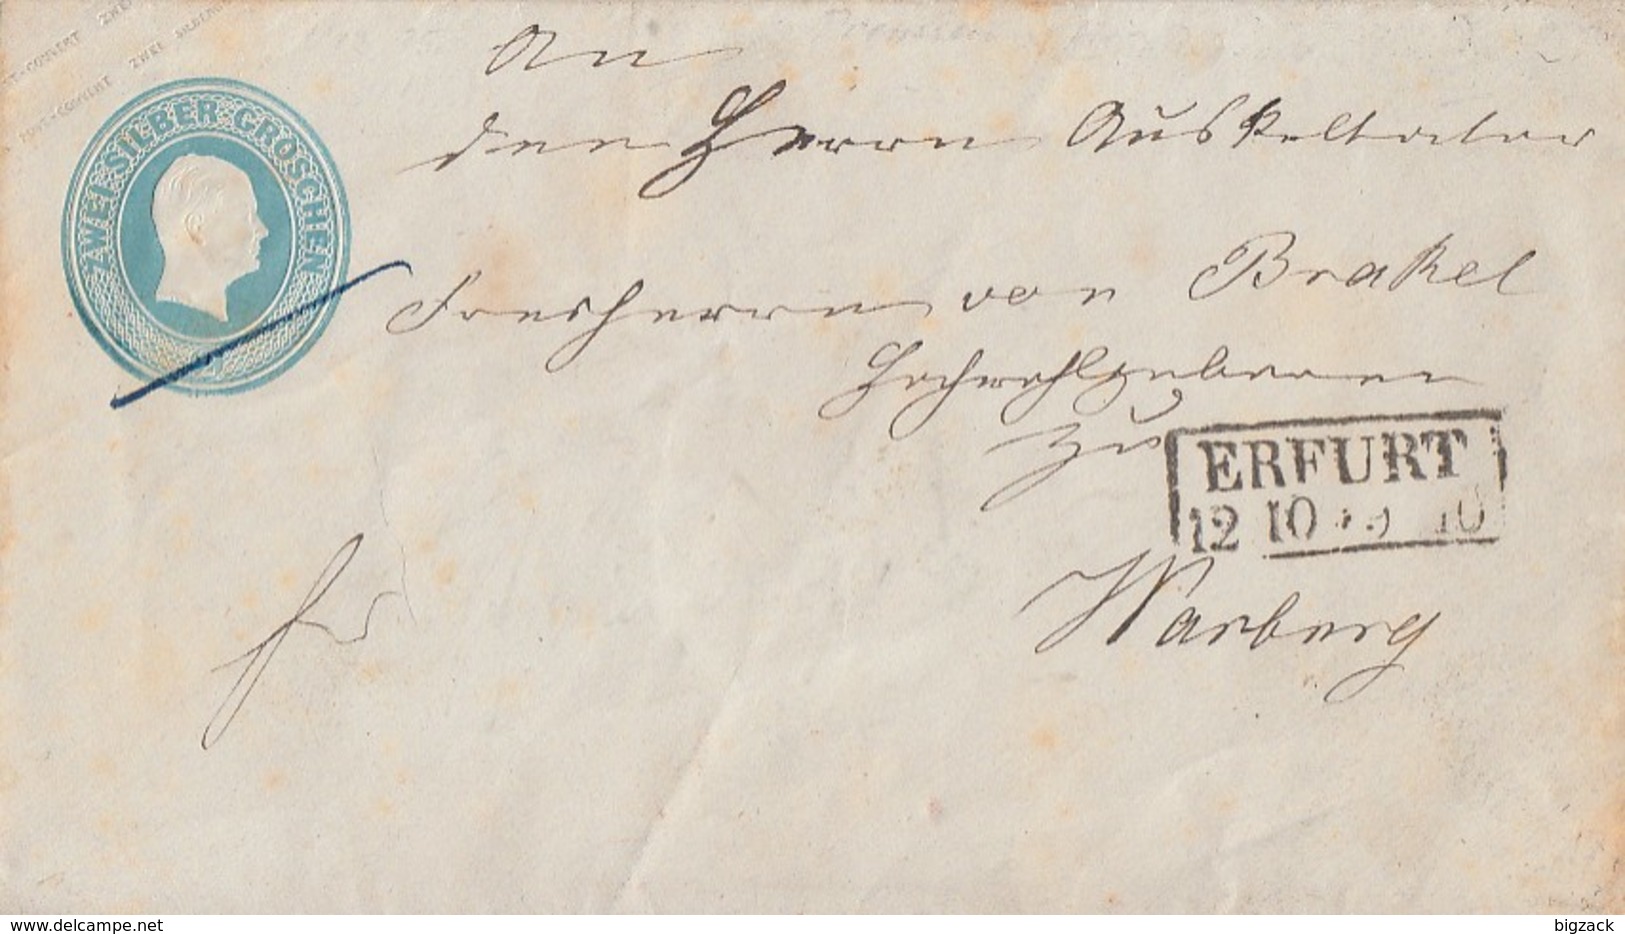 POST-COUVERT ZWEI SILBERGR
T-COUVERT ZWEI
ZWEI SILBER-GROSCHEN
An
den Herrn Auskultator
Freiherrn von Brakel
Hochwohlgeboren
zu
ERFURT
12 10
Warburg
fr
www.delcampe.net
bigzack